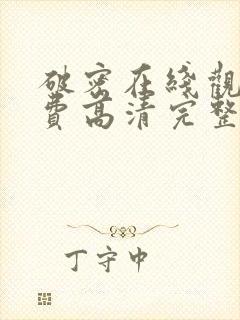 破密在綫觀
費高清完整
丁守中